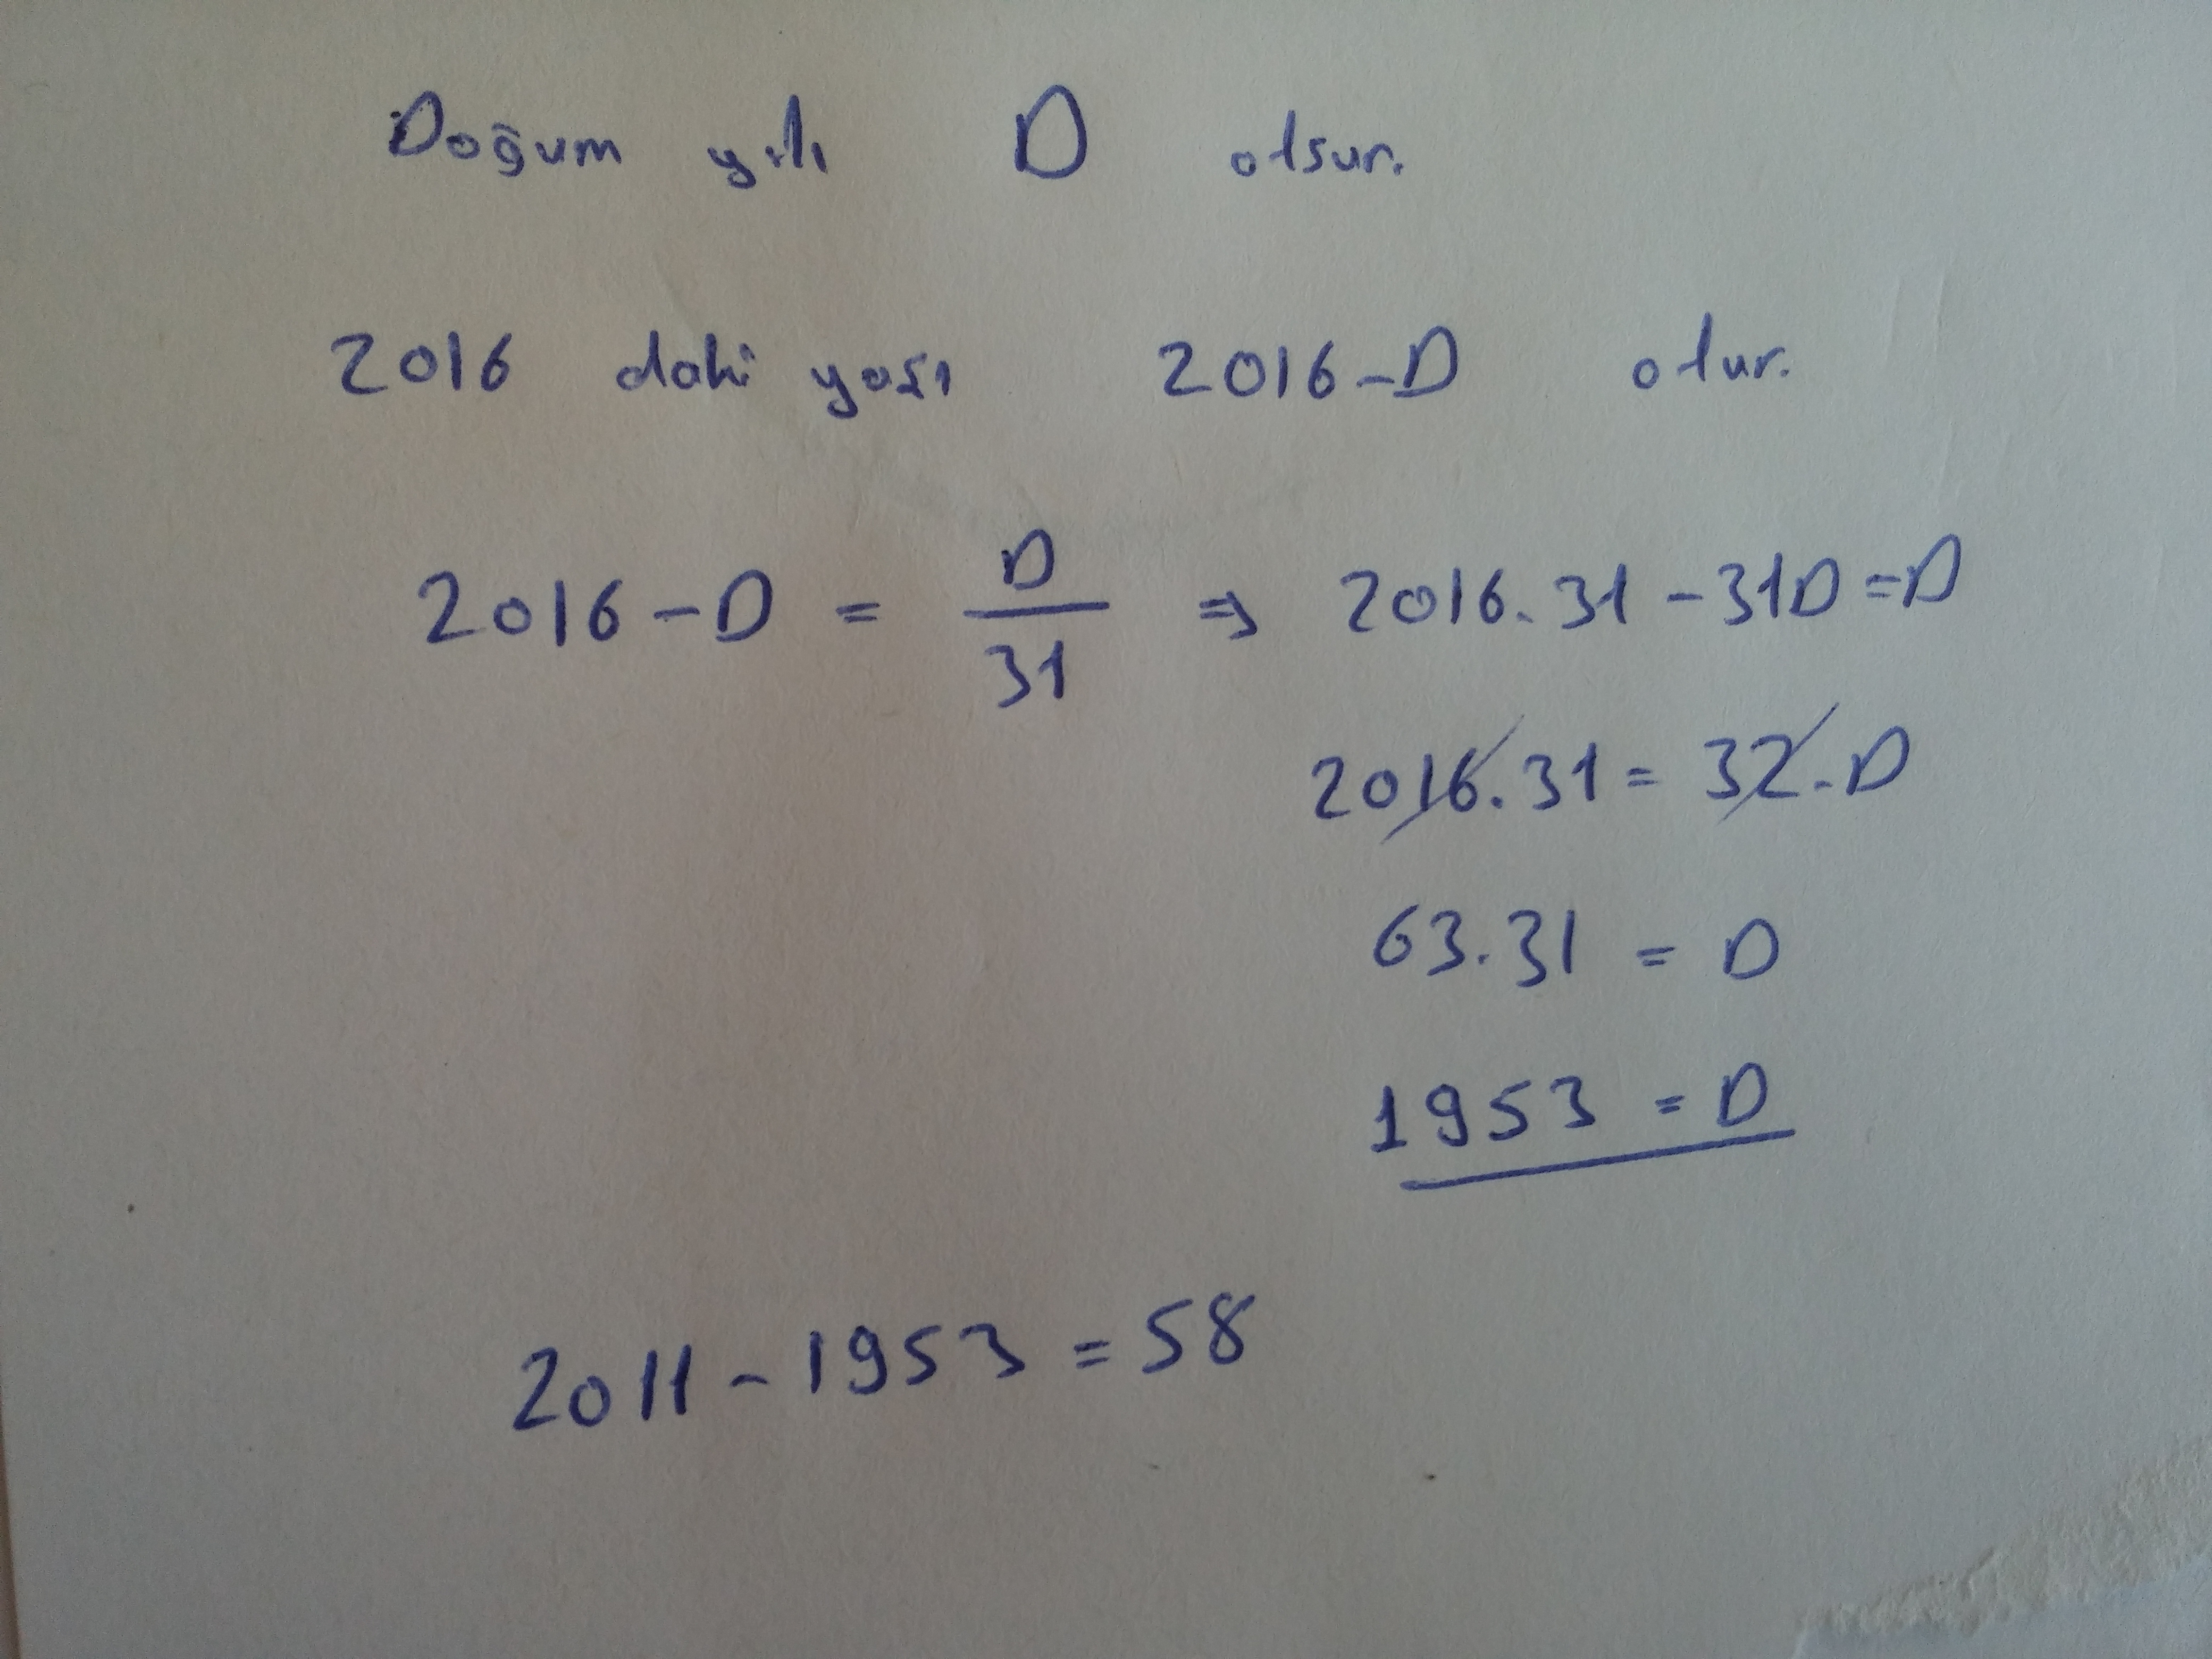 Doğum yılı D olsun.
2016 daki yaşı 2016-D olur.
2016-D = D/31 ⇒ 2016.31-31D=D
2016.31=32.D
63.31 = D
1953 = D
2011-1953=58